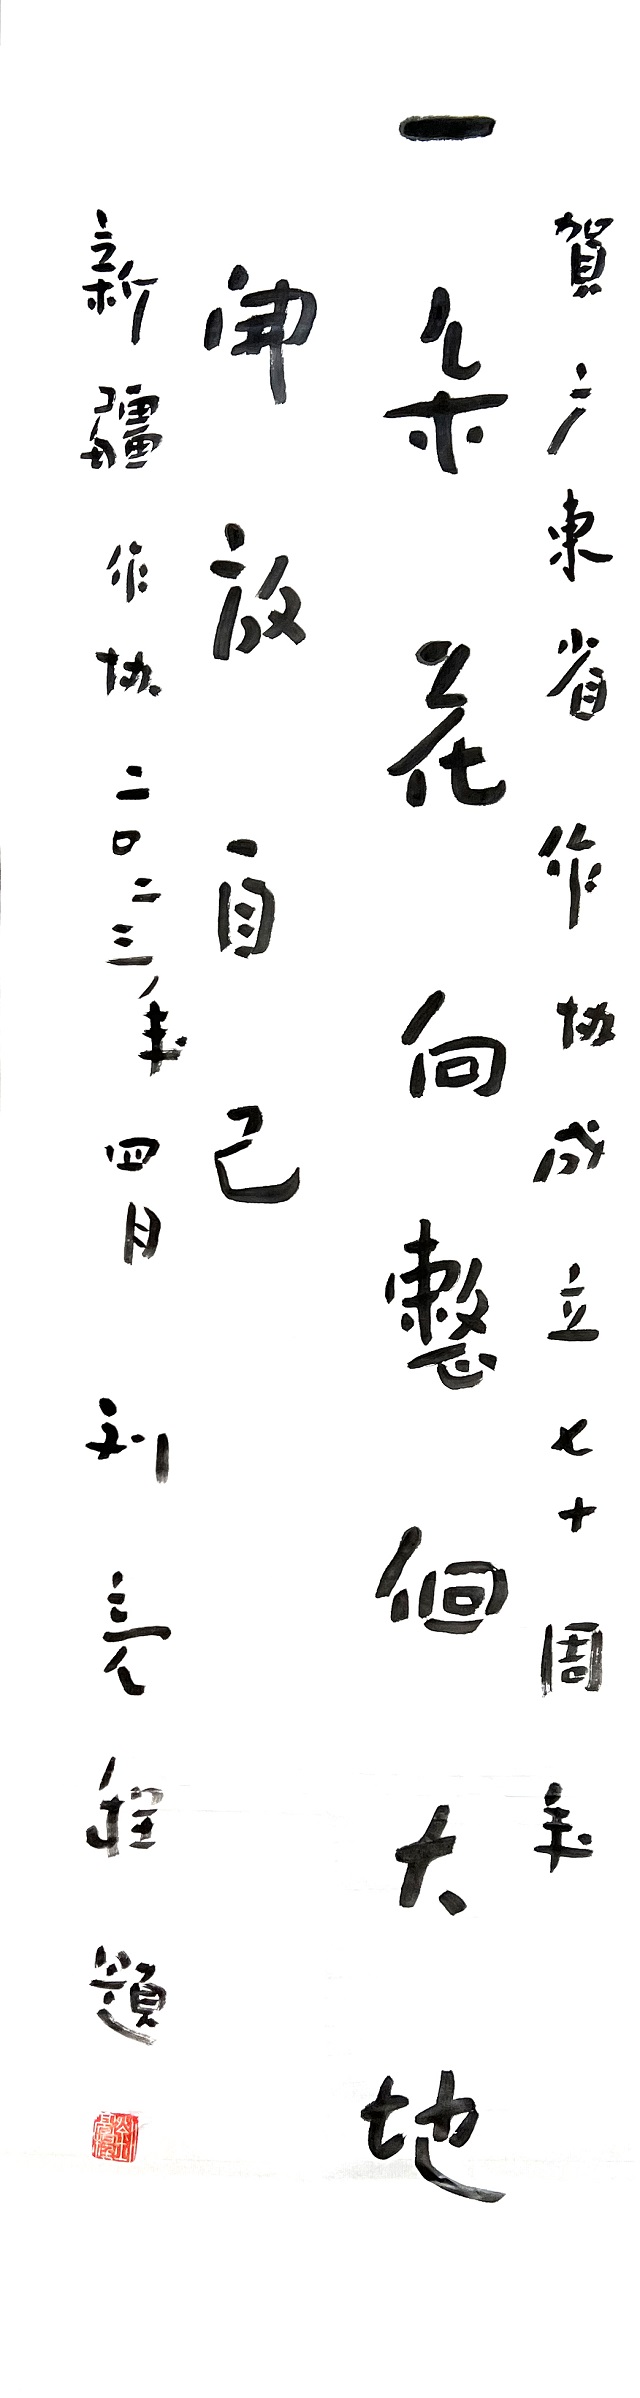 賀广東省作协成立七十周年
一朵花向整個大地
開放自己
新疆作协二〇二三年四月 刘亮程題